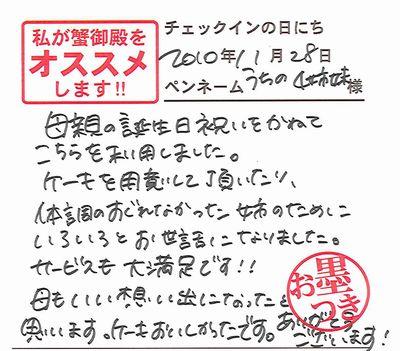 私が蟹御殿を
オススメ
します!!
チェックインの日にち
2010年11月28日
ペンネーム うちの4姉妹 様
母親の誕生日祝いをかねて
こちらを利用しました。
ケーキを用意して頂いたり、
体調のすぐれなかった姉のために
いろいろとお世話になりました。
サービスも大満足です!!
母もいい想い出になったと
思います。ケーキおいしかったです。ありがとう
ございます!
お墨
つき